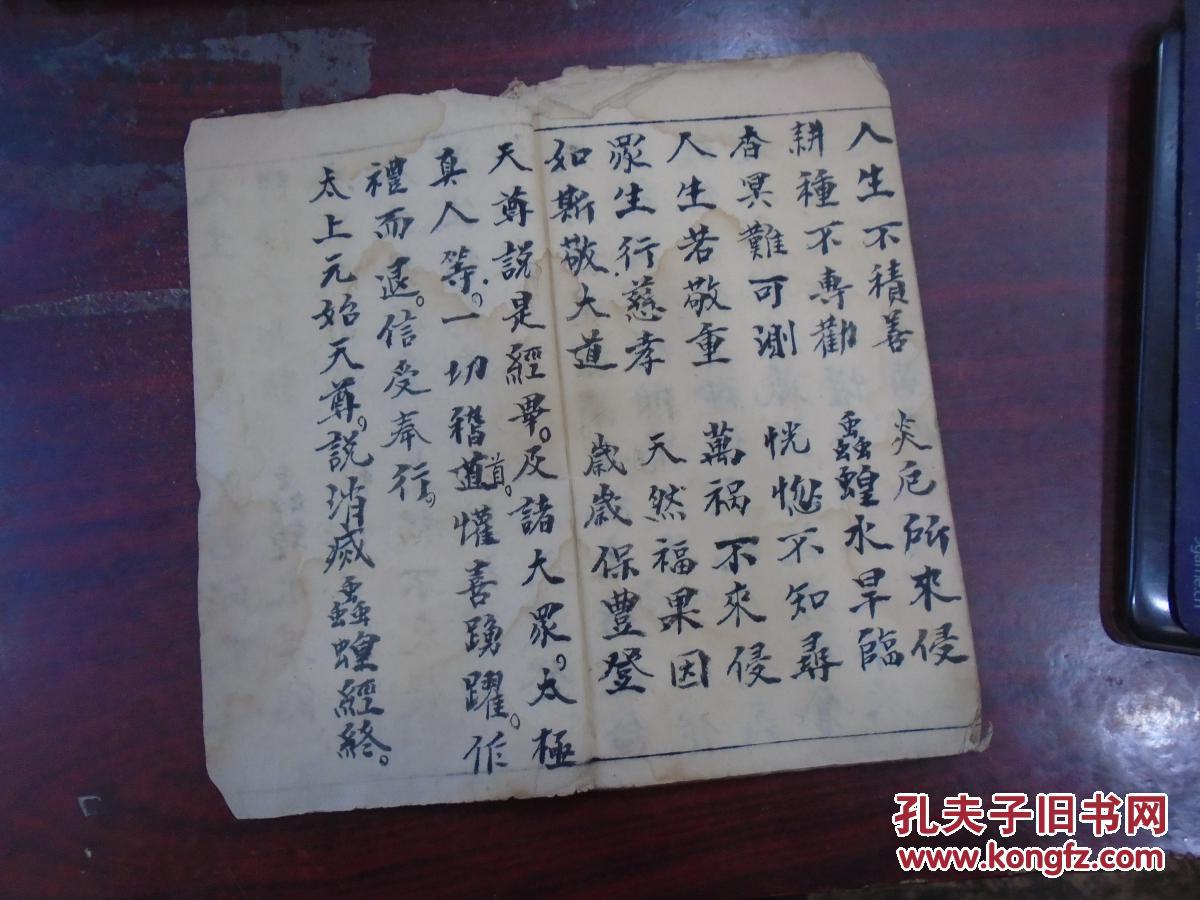 人生不積善 炎厄所來侵
耕種不專勸 蟲蝗水旱臨
杳冥難可測 恍惚不知尋
人生若敬重 萬禍不來侵
眾生行慈孝 天然福果因
如斯敬大道 歲歲保豐登
天尊説是經畢。及諸大眾。太極
真人等。一切稽道首。懽喜踴躍。作
禮而退。信受奉行。
太上元始天尊。説消滅蟲蝗經終。
孔夫子旧书网
www.kongfz.com